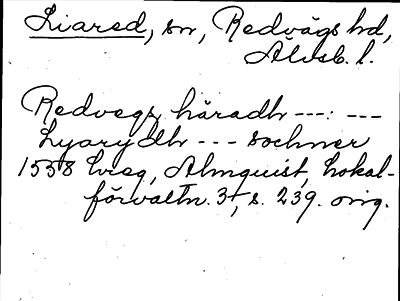 Liared, sn, Redvägs hd,
Älvsb. l.
Redvegz häradh ---: ---
Lyarydh --- sochner
1538 hreg, Almquist, Lokal-
förvaltn. 3t, s. 239. orig.